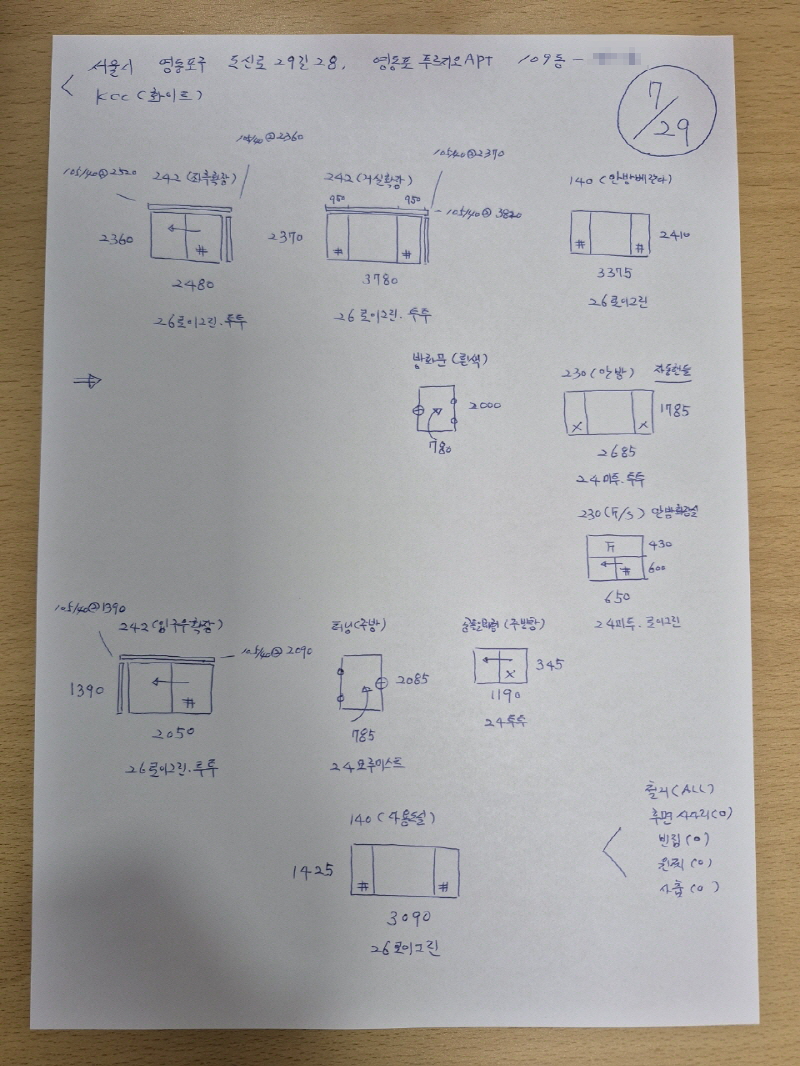 서울시 영등포구 도신로 29길 28, 영등포 푸르지오APT 109동 -
KCC (화이트)
7/29
105/40@2360
105/40@2520
242 (좌측확장)
2360
2480
26로이그린·투투
105/40@2370
242 (거실확장)
950 950
105/40@3820
2370
3780
26로이그린·투투
140 (안방베란다)
2410
3375
26로이그린
방화문 (흰색)
2000
780
230 (안방) 자동핸들
1785
2685
24미투·투투
230 (F/S) 안방
430
600
650
24미투·로이그린
105/40@1390
242 (입구우확장)
105/40@2090
1390
2050
26로이그린·투투
터닝 (주방)
2085
785
24모루미스트
345
1190
24투투
140 (다용도실)
1425
3090
26로이그린
철거 (ALL)
후면 사다리 (O)
빈집 (O)
(O)
사춤 (O)